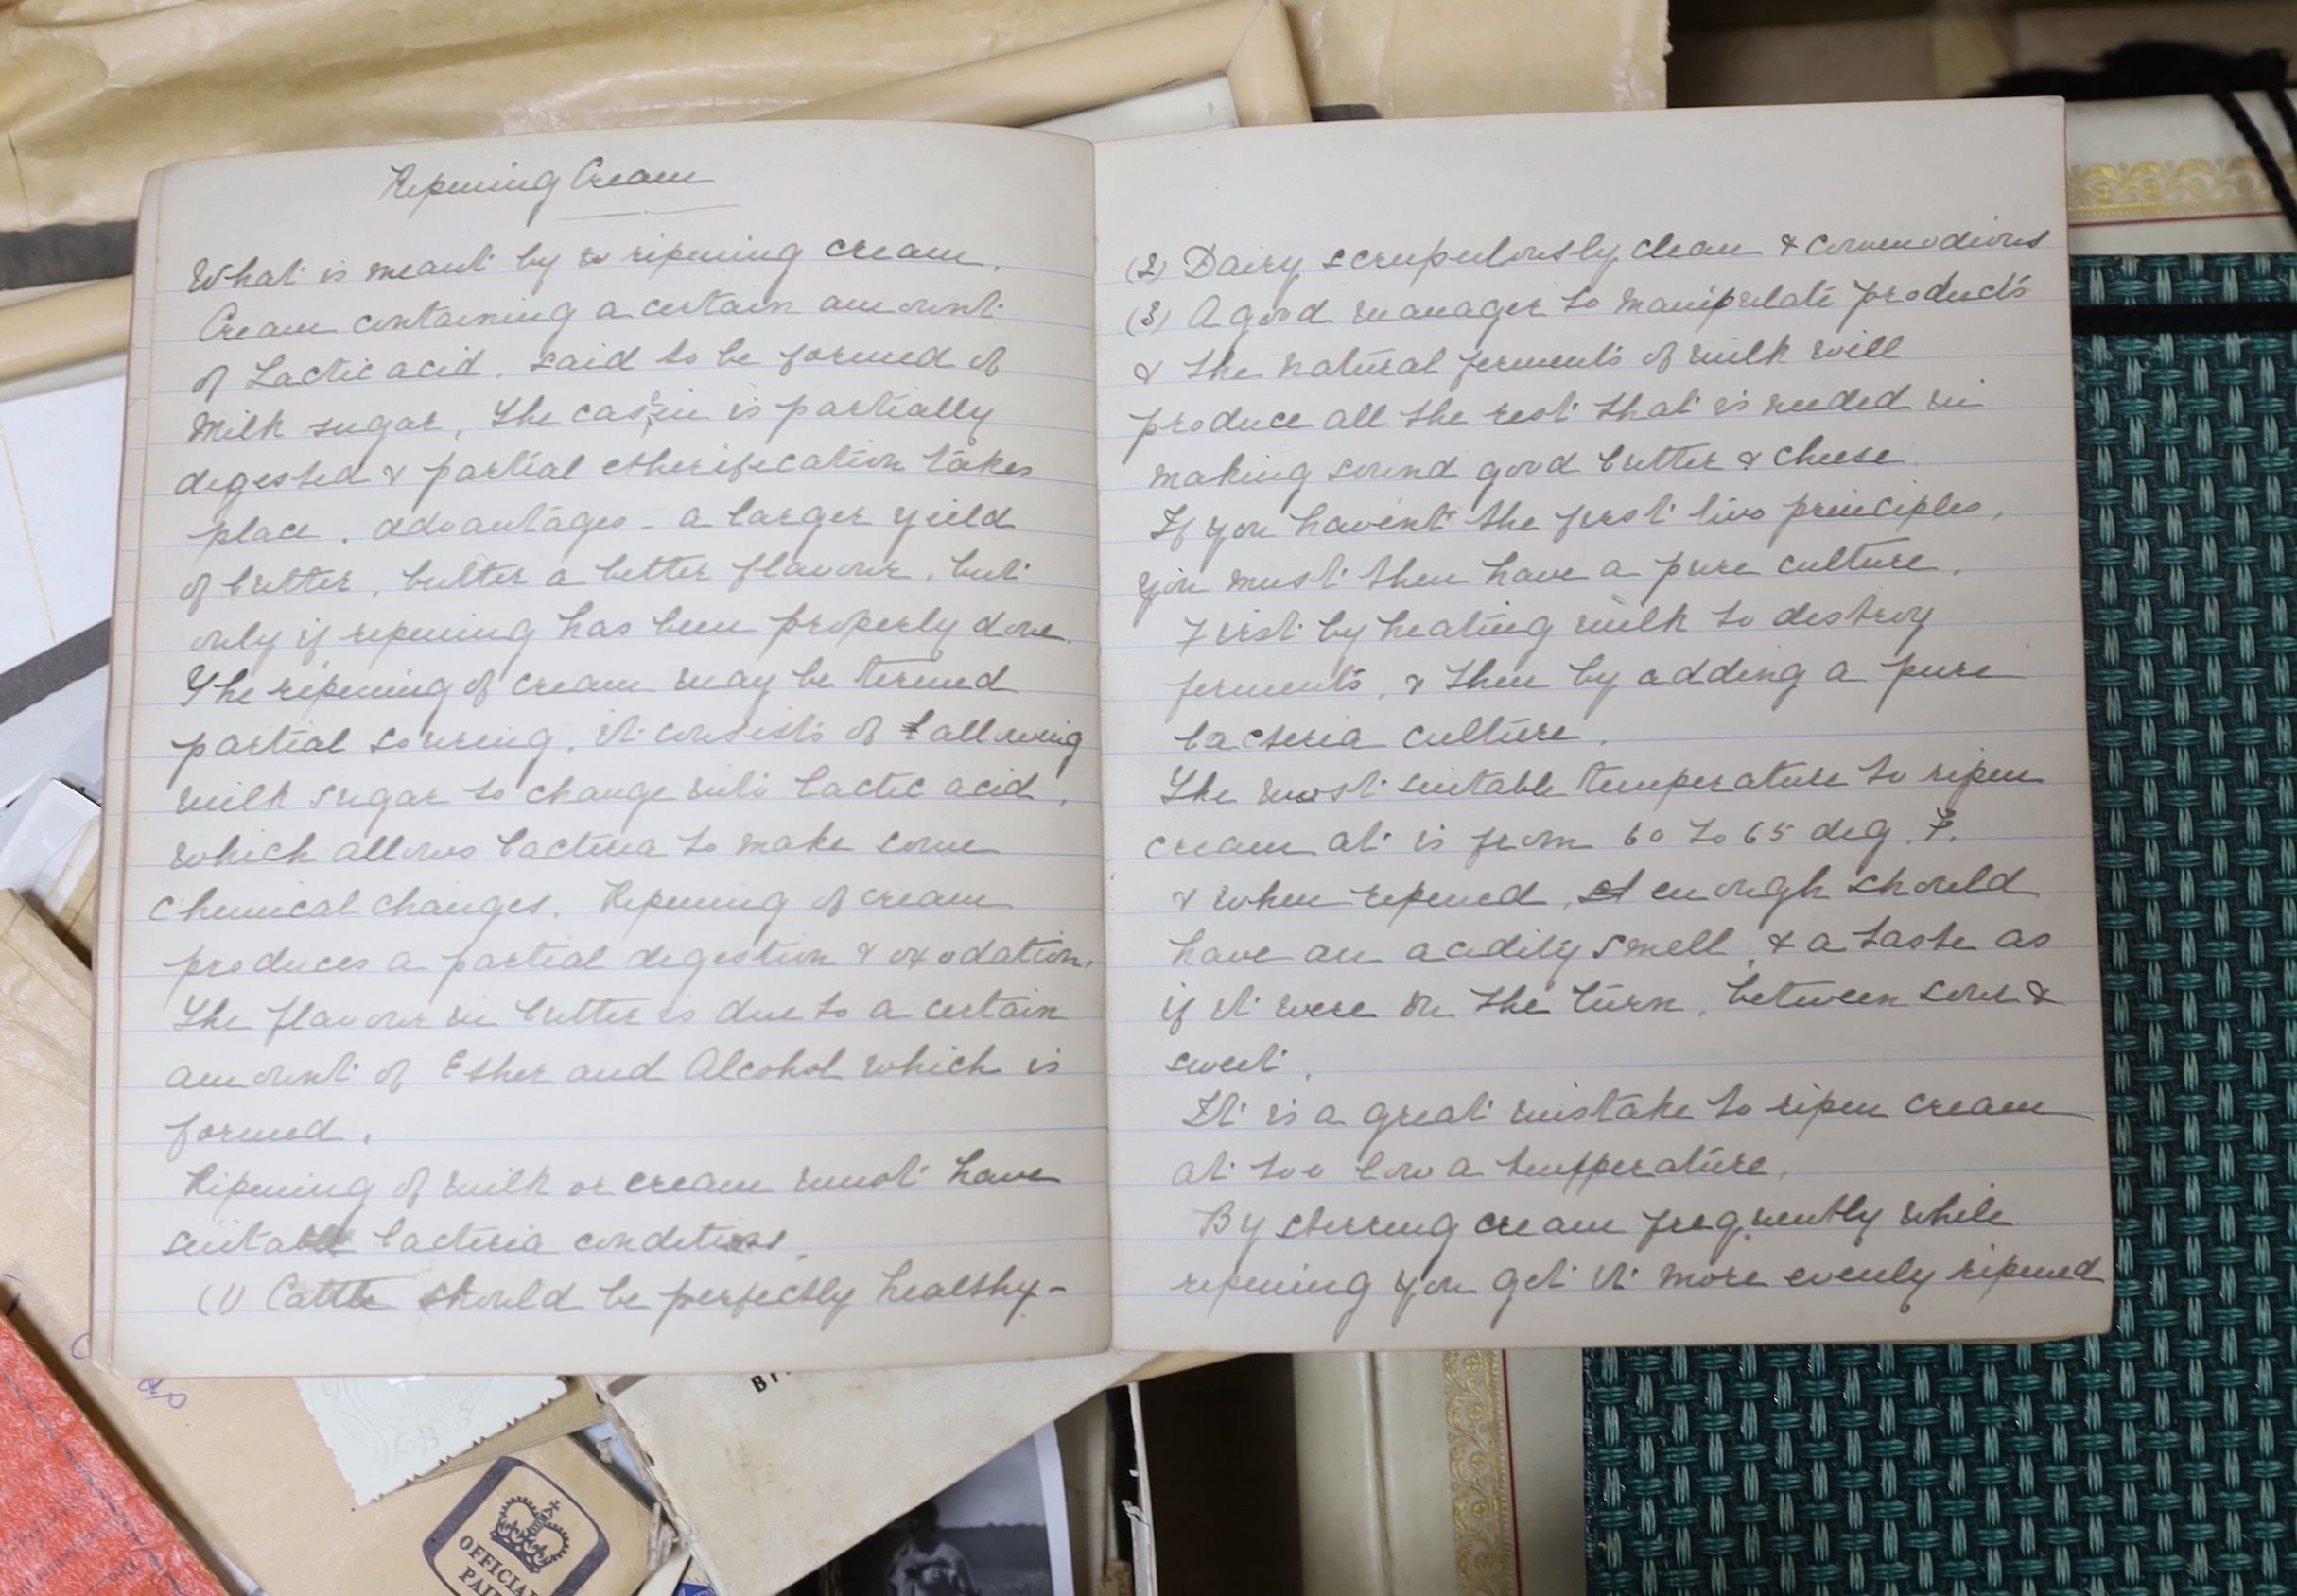 Ripening Cream
What is meant by ripening cream.
Cream containing a certain amount
of Lactic acid, said to be formed of
Milk sugar, The casein is partially
digested & partial etherification takes
place. advantages - a larger yield
of butter, butter a better flavour, but
only if ripening has been properly done.
The ripening of cream may be termed
partial souring. it consists of allowing
milk sugar to change into lactic acid,
which allows bacteria to make some
chemical changes. Ripening of cream
produces a partial digestion & oxodation.
The flavour in butter is due to a certain
amount of Ether and Alcohol which is
formed.
Ripening of milk or cream must have
suitable bacteria conditions.
(1) Cattle should be perfectly healthy-
(2) Dairy scrupulously clean & commodious
(3) A good manager to manipulate products
& the natural ferments of milk will
produce all the rest that is needed in
making sound good butter & cheese.
If you havent the first two principles,
you must then have a pure culture.
First by heating milk to destroy
ferments, & then by adding a pure
bacteria culture.
The most suitable temperature to ripen
cream at is from 60 to 65 deg. F.
& when ripened, enough should
have an acidity smell, & a taste as
if it were on the turn, between sour &
sweet.
It is a great mistake to ripen cream
at too low a temperature.
By stirring cream frequently while
ripening you get it more evenly ripened
OFFICIAL